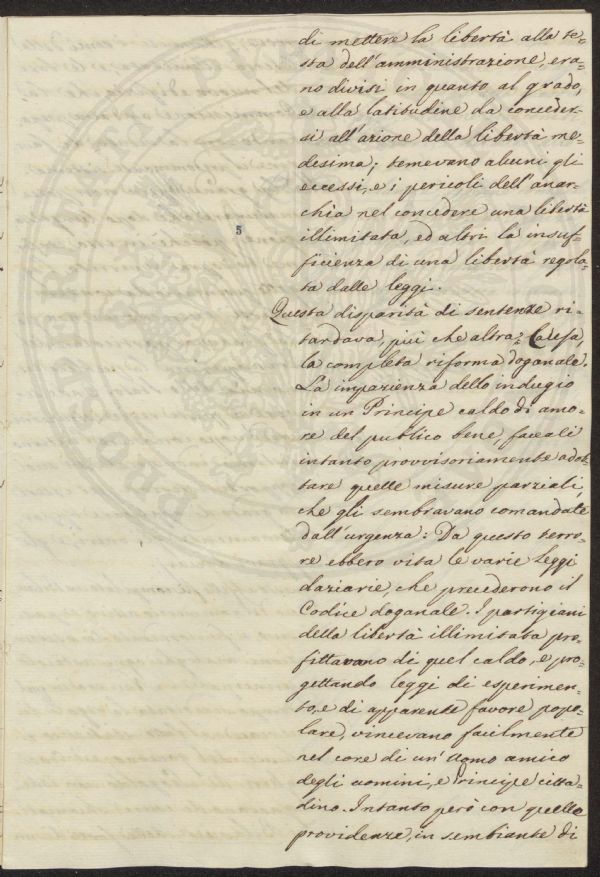 di mettere la libertà alla te=
sta dell'amministrazione, era=
no divisi in quanto al grado,
e alla latitudine da conceder=
si all'azione della libertà me=
desima; temevano alcuni gli
eccessi, e i pericoli dell'anar=
chia nel concedere una libertà
5
illimitata, ed altri la insuf=
ficienza di una libertà regola=
ta dalle leggi.
Questa disparità di sentenze ri=
tardava, più che altra Causa,
la completa riforma doganale.
La impazienza dello indugio
in un Principe caldo di amo=
re del publico bene, faceali
intanto provvisoriamente adot=
tare quelle misure parziali,
che gli sembravano comandate
dall'urgenza: Da questo terro=
re ebbero vita le varie Leggi
daziarie, che precederono il
Codice doganale. I partigiani
della libertà illimitata pro=
fittavano di quel caldo, e pro=
gettando leggi di esperimen=
to, e di apparente favore popo=
lare, vincevano facilmente
nel core di un' uomo amico
degli uomini, e Principe citta=
dino. Intanto però con quelle
providenze, in sembiante di